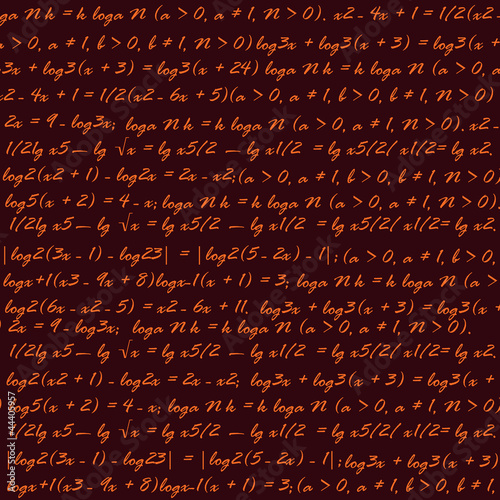 loga n k = k loga n (a > 0, a ≠ 1, n > 0). x2 - 4x + 1 = 1/2(x2
a > 0, a ≠ 1, b > 0, b ≠ 1, n > 0) log3x + log3(x + 3) = log3(x +
3x + log3(x + 3) = log3(x + 24) loga n k = k loga n (a > 0,
x2 - 4x + 1 = 1/2(x2 - 6x + 5)(a > 0, a ≠ 1, b > 0, b ≠ 1, n > 0)
2x = 9 - log3x; loga n k = k loga n (a > 0, a ≠ 1, n > 0). x2 -
1/2lg x5 — lg √x = lg x5/2 — lg x1/2 = lg x5/2/ x1/2= lg x2.
log2(x2 + 1) - log2x = 2x - x2;(a > 0, a ≠ 1, b > 0, b ≠ 1, n > 0)
log5(x + 2) = 4 - x; loga n k = k loga n (a > 0, a ≠ 1, n > 0).
1/2lg x5 — lg √x = lg x5/2 — lg x1/2 = lg x5/2/ x1/2= lg x2.
|log2(3x - 1) - log23| = |log2(5 - 2x) - 1|;(a > 0, a ≠ 1,
logx+1(x3 - 9x + 8)logx-1(x + 1) = 3; loga n k = k loga n (a >
log2(6x - x2 - 5) = x2 - 6x + 11. log3x + log3(x + 3) = log3(x +
) 2x = 9 - log3x; loga n k = k loga n (a > 0, a ≠ 1, n > 0).
1/2lg x5 — lg √x = lg x5/2 — lg x1/2 = lg x5/2/ x1/2= lg x2.
log2(x2 + 1) - log2x = 2x - x2; log3x + log3(x + 3) = log3(x +
log5(x + 2) = 4 - x; loga n k = k loga n (a > 0, a ≠ 1, n > 0)
1/2lg x5 — lg √x = lg x5/2 — lg x1/2 = lg x5/2/ x1/2= lg x2.
|log2(3x - 1) - log23| = |log2(5 - 2x) - 1|;log3x + log3(x + 3)
logx+1(x3 - 9x + 8)logx-1(x + 1) = 3;(a > 0, a ≠ 1, b > 0, b ≠ 1,
Adobe Stock | #44405957